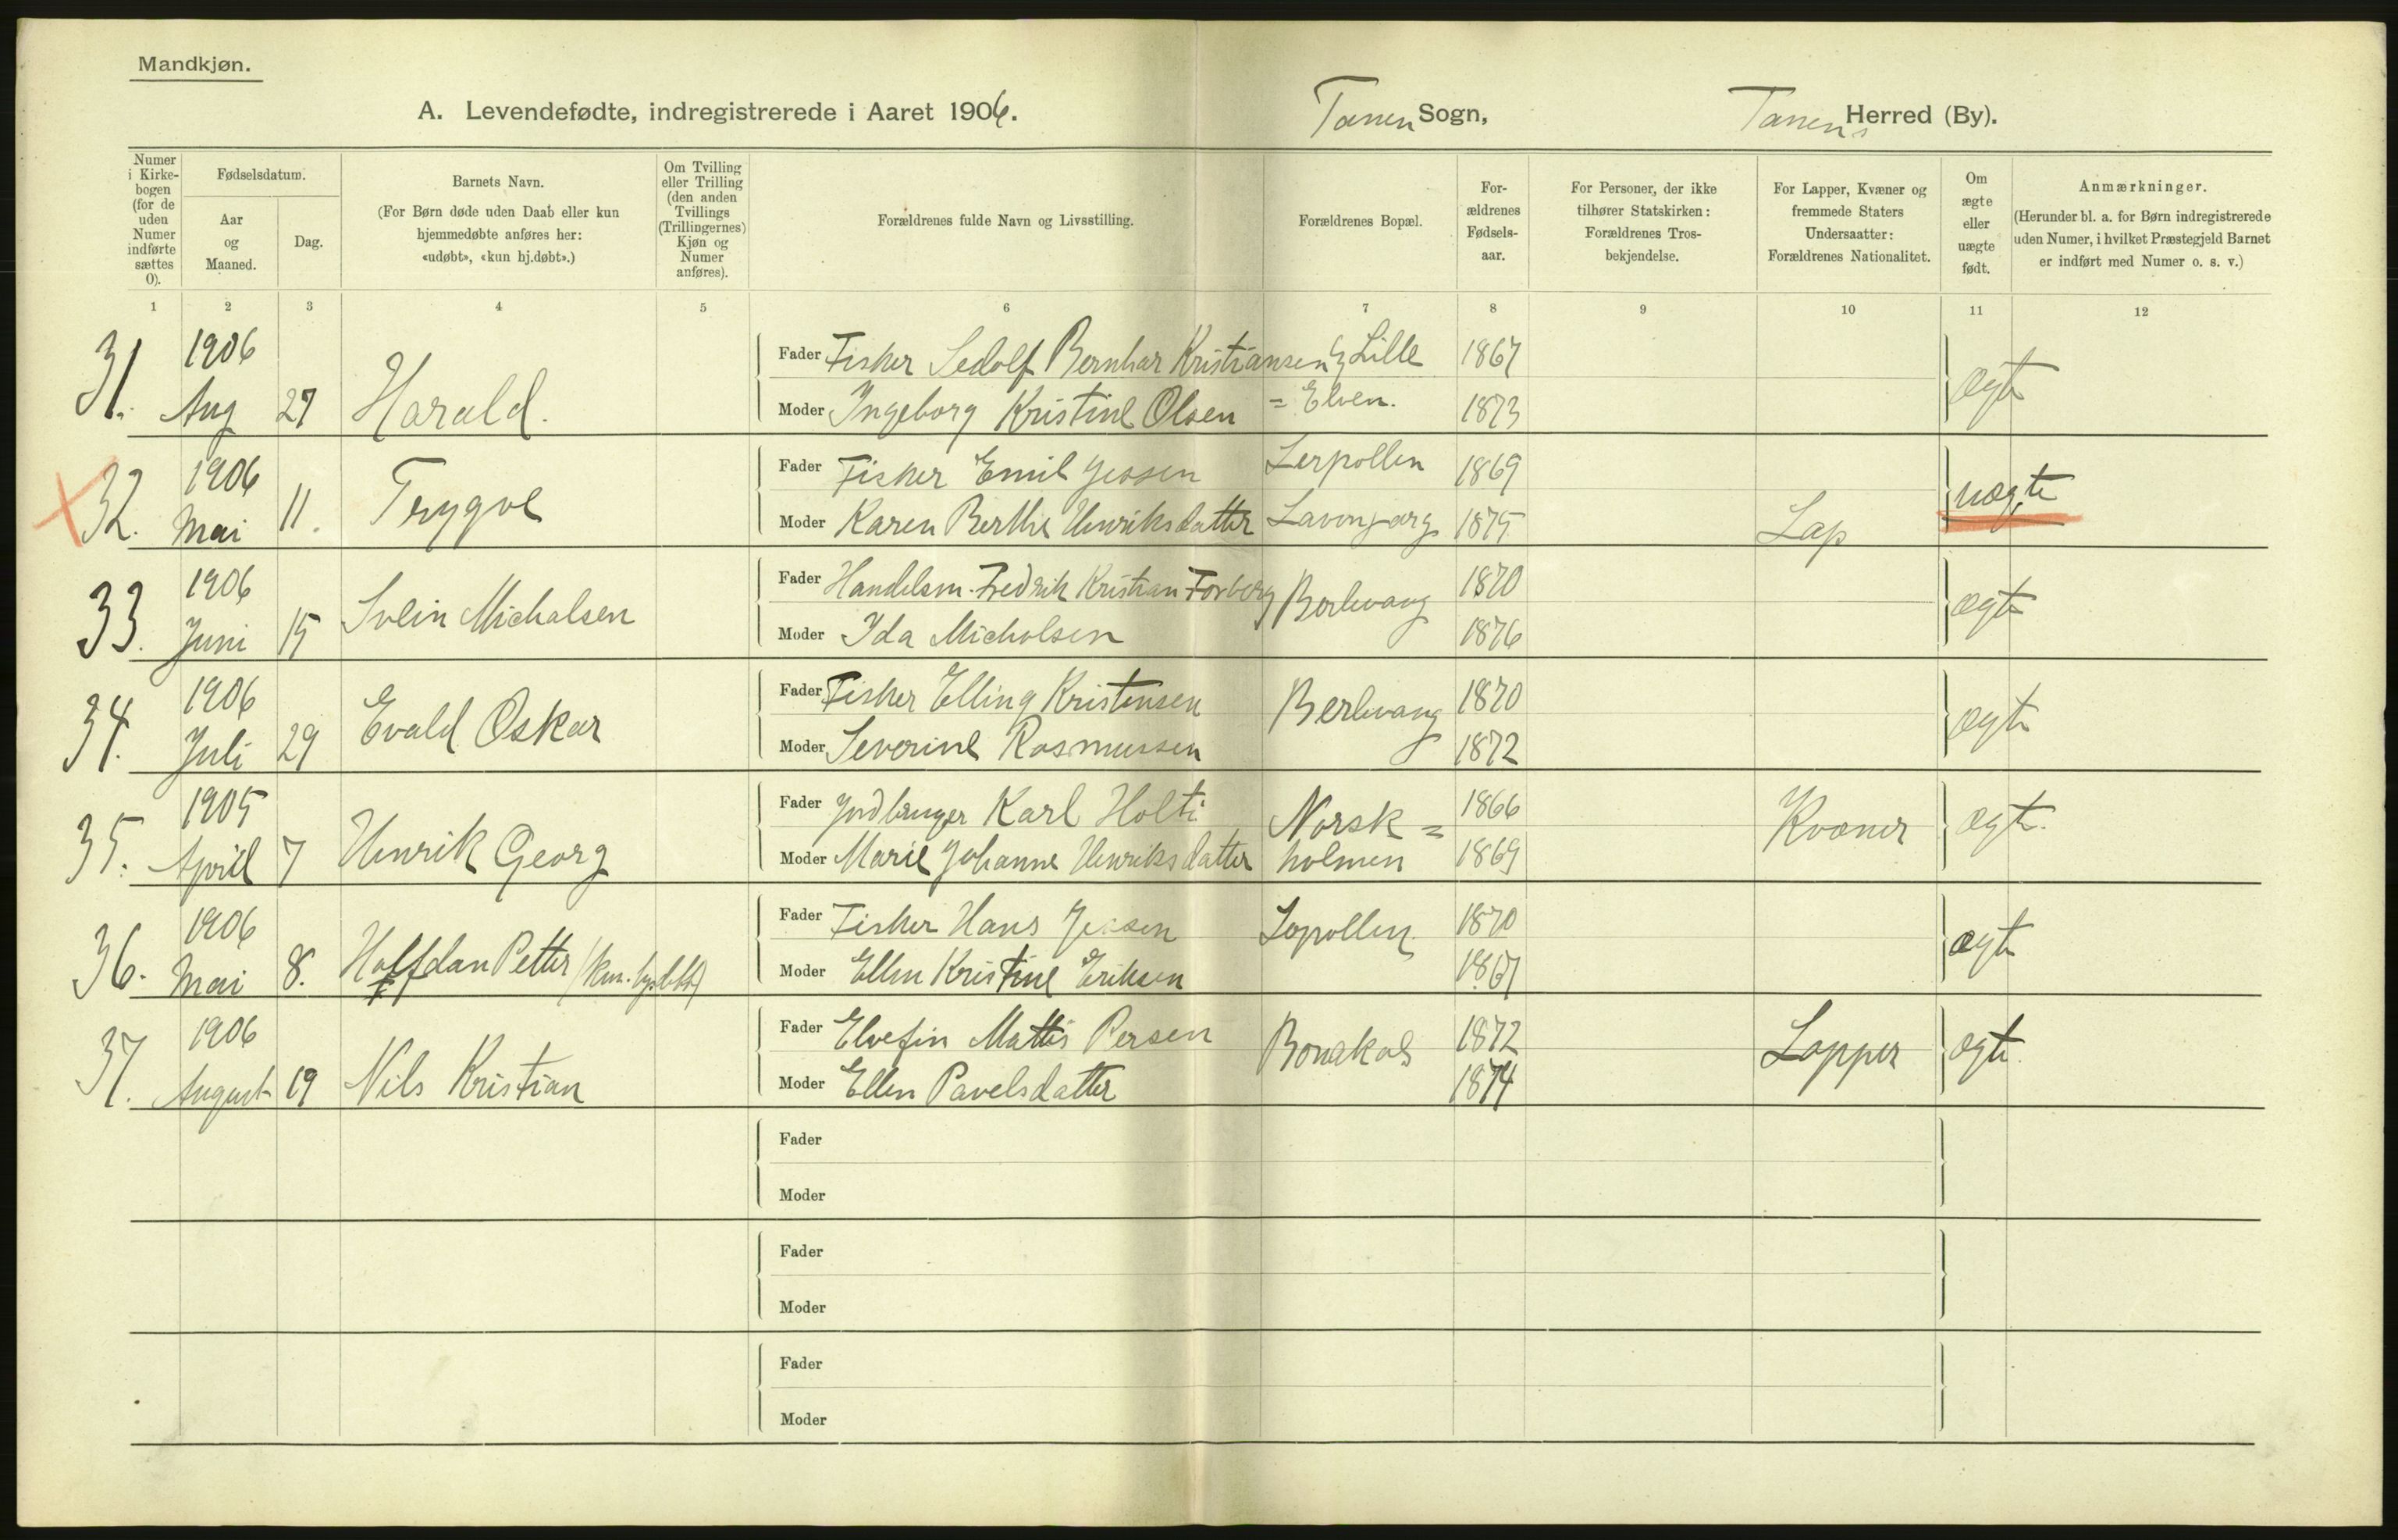 Mandkjøn.
A. Levendefødte, indregistrerede i Aaret 1906. Tanen Sogn, Tanens Herred (By).
Numer i Kirkebogen (for de uden Numer indførte sættes 0).
Fødselsdatum.
Aar og Maaned.
Dag.
Barnets Navn.
(For Børn døde uden Daab eller kun hjemmedøbte anføres her: «udøbt», «kun hj.døbt».)
Om Tvilling eller Trilling (den anden Tvillings (Trillingernes) Kjøn og Numer anføres).
Forældrenes fulde Navn og Livsstilling.
Forældrenes Bopæl.
Forældrenes Fødselsaar.
For Personer, der ikke tilhører Statskirken: Forældrenes Trosbekjendelse.
For Lapper, Kvæner og fremmede Staters Undersaatter: Forældrenes Nationalitet.
Om ægte eller uægte født.
Anmærkninger.
(Herunder bl. a. for Børn indregistrerede uden Numer, i hvilket Præstegjeld Barnet er indført med Numer o. s. v.)
1 2 3 4 5 6 7 8 9 10 11 12
31. 1906 Aug 27 Harald. Fader Fisker Sedolf Bernhar Kristiansen Lille 1867 ægte
Moder Ingeborg Kristine Olsen = Elven. 1873
32. 1906 Mai 11. Trygve Fader Fisker Emil Jessen Lerpollen 1869 uægte
Moder Karen Berthe Henriksdatter Lavonjarg 1875 Lap
33. 1906 Juni 15 Svein Michalsen Fader Handelsm. Fredrik Kristian Forberg Berlevaag 1870 ægte
Moder Ida Micholsen 1876
34. 1906 Juli 29 Evald Oskar Fader Fisker Elling Kristensen Berlevaag 1870 ægte
Moder Severine Rasmussen 1872
35. 1905 April 7 Henrik Georg Fader Jordbruger Karl Holti Norsk = 1866 Kvæner ægte.
Moder Marie Johanne Henriksdatter holmen 1869
36. 1906 Mai 8. Halfdan Petter Fader Fisker Hans Jessen 1870 ægte
Moder Ellen Kristine Eriksen 1867
37. 1906 August 19 Nils Kristian Fader Elvefin Mattis Persen Bonakas 1872 Lapper ægte.
Moder Ellen Pavelsdatter 1874
Fader
Moder
Fader
Moder
Fader
Moder